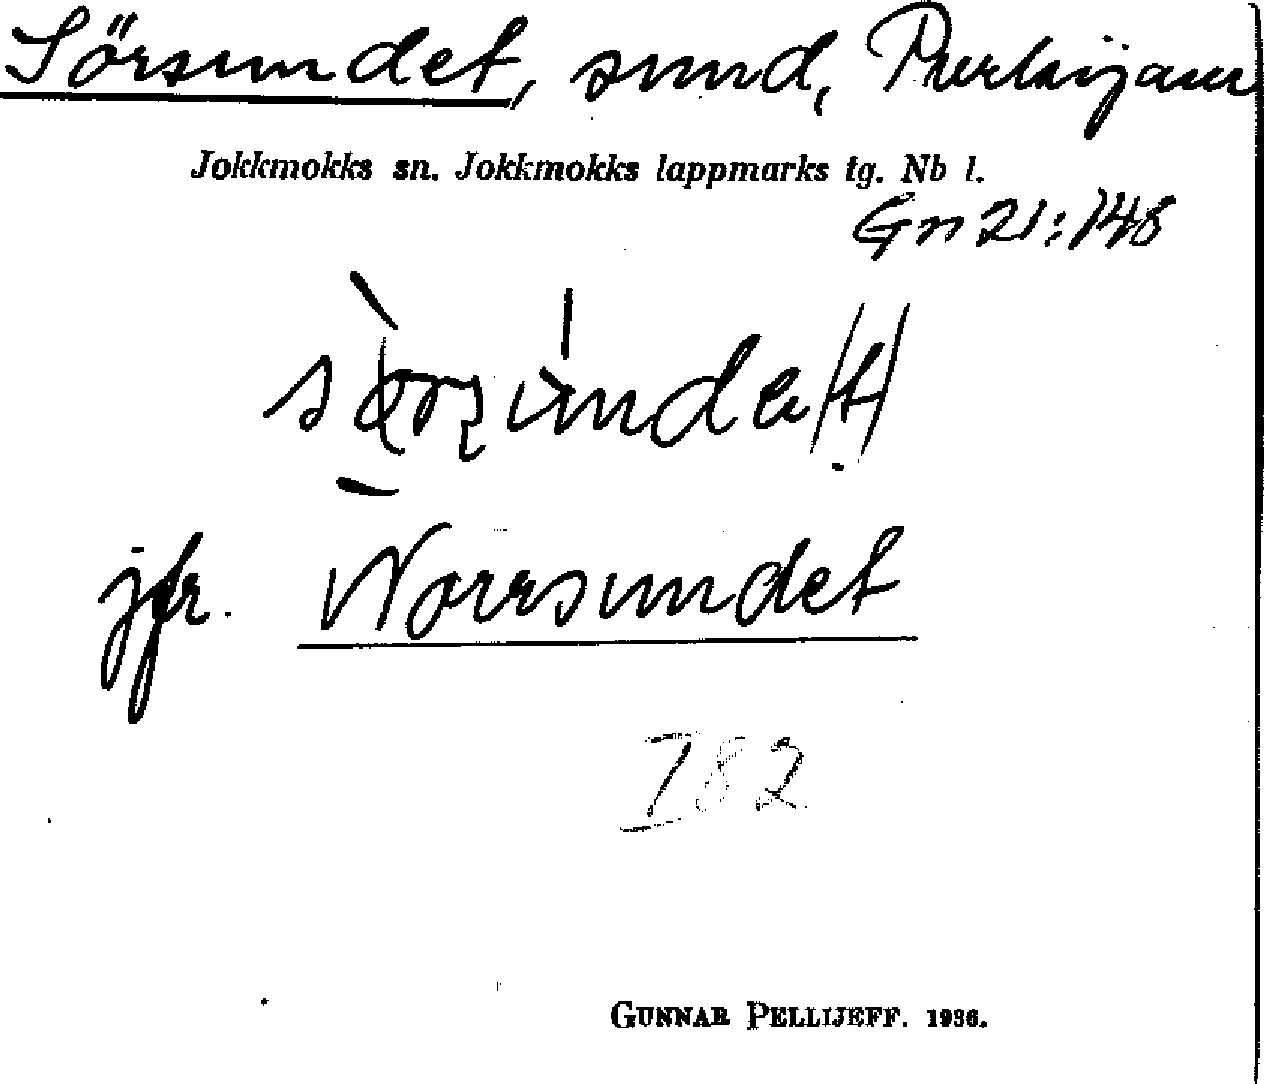 Sörsundet, sund, Purkijaur
Jokkmokks sn. Jokkmokks lappmarks tg. Nb l.
Gn 21:148
jfr. Norrsundet
782
GUNNAR PELLIJEFF. 1936.